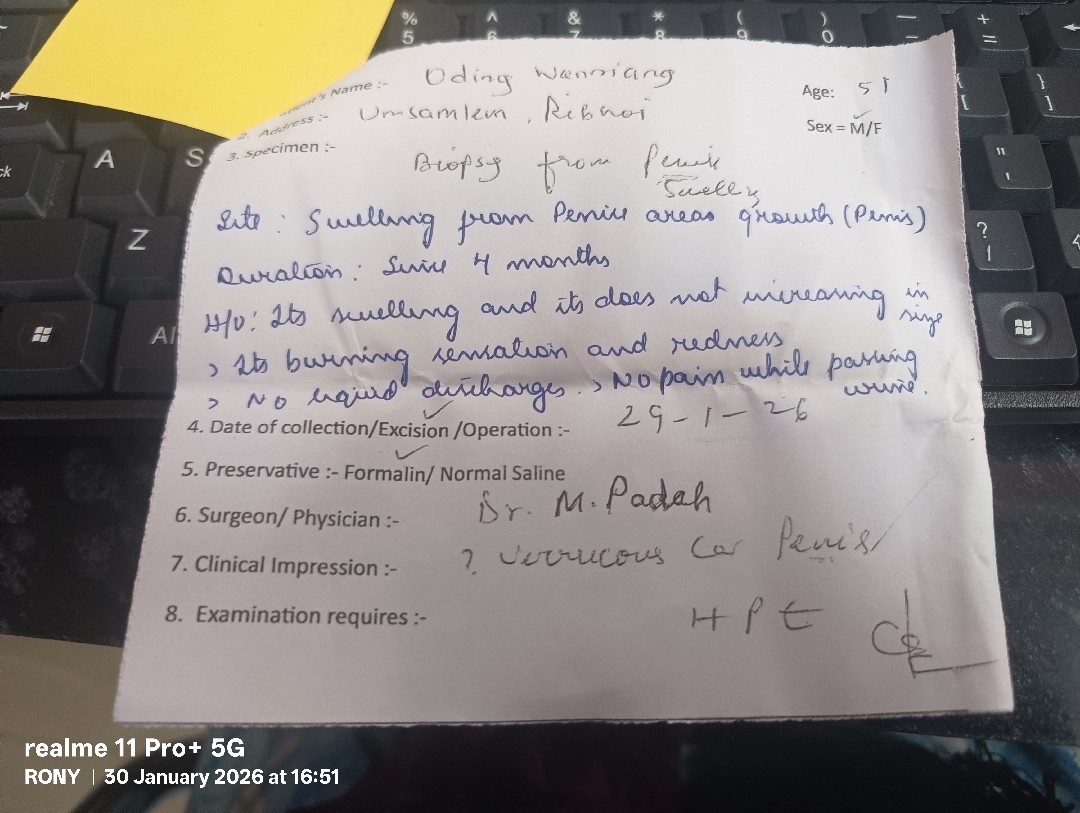 % ^ & * ( ) — +
5 6 7 8 9 0 - =
A S
Z
Al
ck
" '
? /
} ]
's Name :- Oding Wanniang
Age: 51
2. Address :- Umsamlem, Ribhoi
Sex = M/F
3. Specimen :- Biopsy from Penis
Swelly
Site : Swelling from Penis areas growth (Penis)
Duration : Since 4 months
H/O: Its swelling and its does not increasing in size
> Its burning sensation and redness
> No liquid discharges. > No pain while passing urine.
4. Date of collection/Excision /Operation :- 29-1-26
5. Preservative :- Formalin/ Normal Saline
6. Surgeon/ Physician :- Dr. M. Padah
7. Clinical Impression :- ? Verrucous Ca Penis
8. Examination requires :- HPE
realme 11 Pro+ 5G
RONY | 30 January 2026 at 16:51